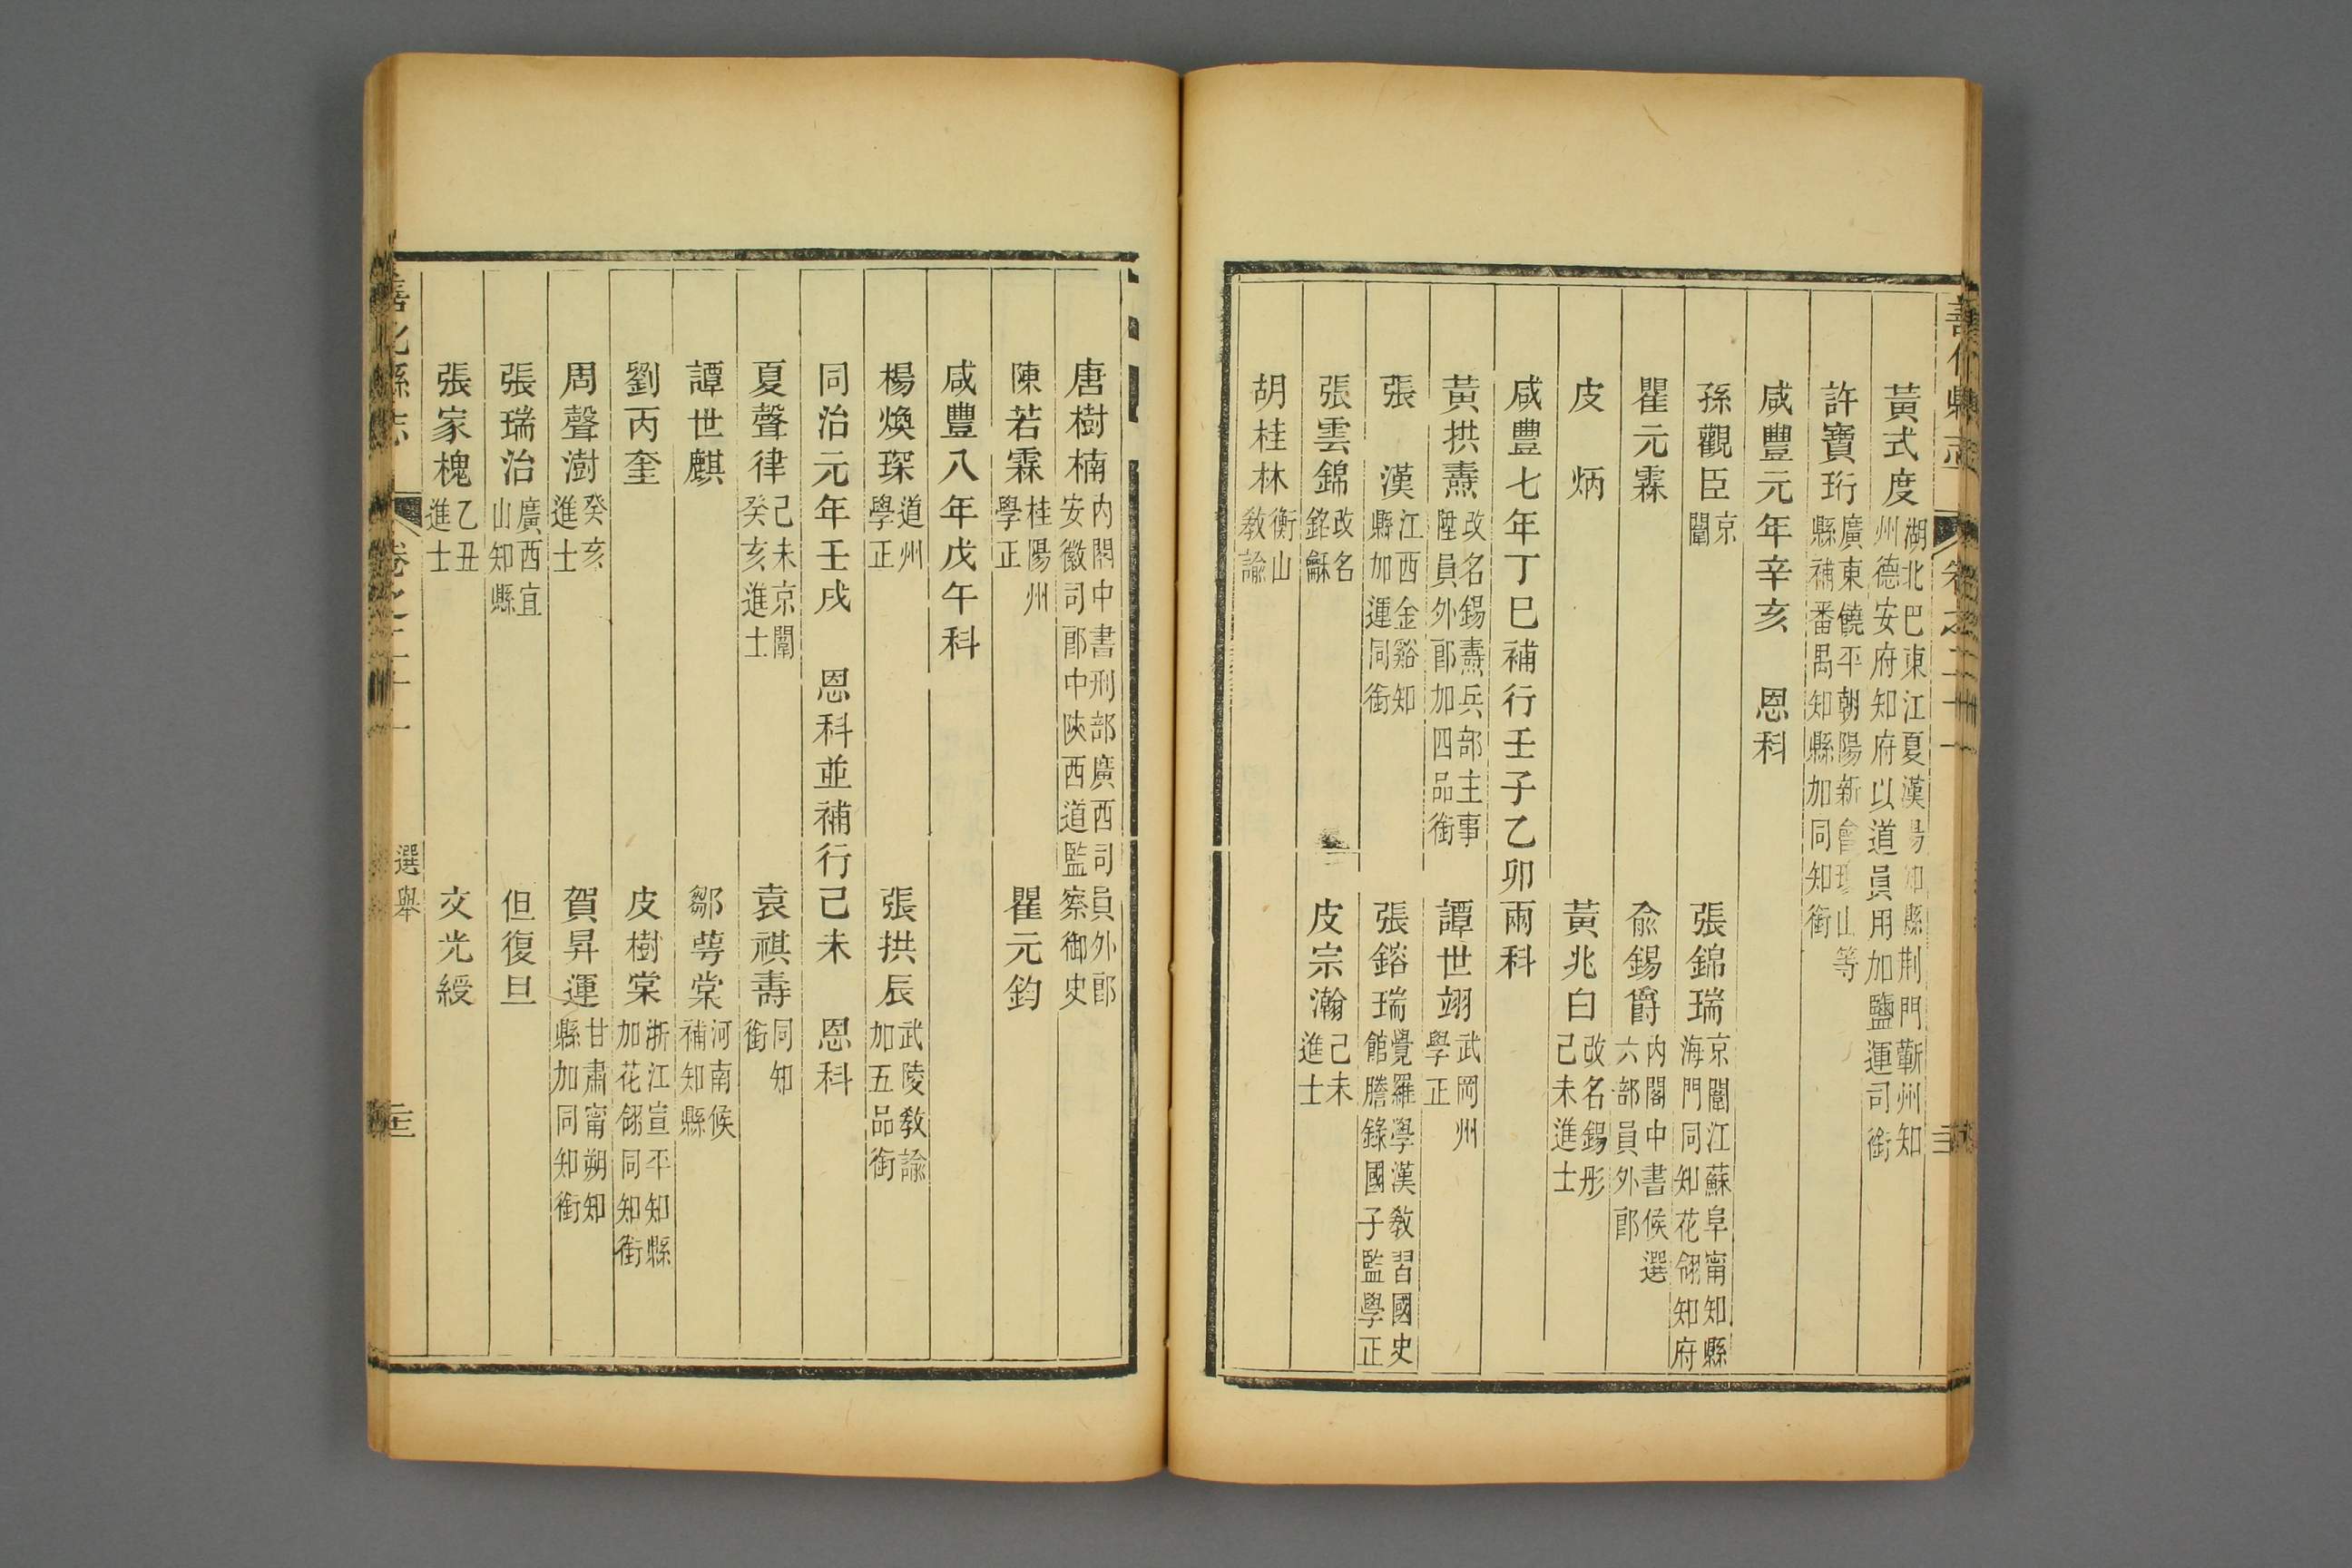 善化縣志
卷之二十一
黃式度 湖北巴東江夏漢陽知縣荆門蘄州知州德安府知府以道員用加鹽運司銜
許寶珩 廣東饒平朝陽新會 山等縣補番禺知縣加同知銜
咸豐元年辛亥 恩科
孫觀臣 京闈 張錦瑞 京闈江蘇阜甯知縣海門同知花翎知府
瞿元霖 俞錫爵 內閣中書候選六部員外郎
皮 炳 黃兆白 改名錫彤己未進士
咸豐七年丁巳補行壬子乙卯兩科
黃拱燾 改名錫燾兵部主事陞員外郎加四品銜 譚世翊 武岡州學正
張 漢 江西金谿知縣加運同銜 張鎔瑞 覺羅學漢教習國史館謄錄國子監學正
張雲錦 改名銘龢 皮宗瀚 己未進士
胡桂林 衡山教諭
唐樹楠 內閣中書刑部廣西司員外郎安徽司郎中陝西道監察御史
陳若霖 桂陽州學正 瞿元鈞
咸豐八年戊午科
楊煥琛 道州學正 張拱辰 武陵教諭加五品銜
同治元年壬戌 恩科並補行己未 恩科
夏聲律 己未京闈癸亥進士 袁祺壽 同知銜
譚世麒 鄒蕚棠 河南候補知縣
劉丙奎 皮樹棠 浙江宣平知縣加花翎同知銜
周聲澍 癸亥進士 賀昇運 甘肅甯朔知縣加同知銜
張瑞治 廣西宜山知縣 但復旦
張家槐 乙丑進士 文光綬
善化縣志
卷之二十一
選舉